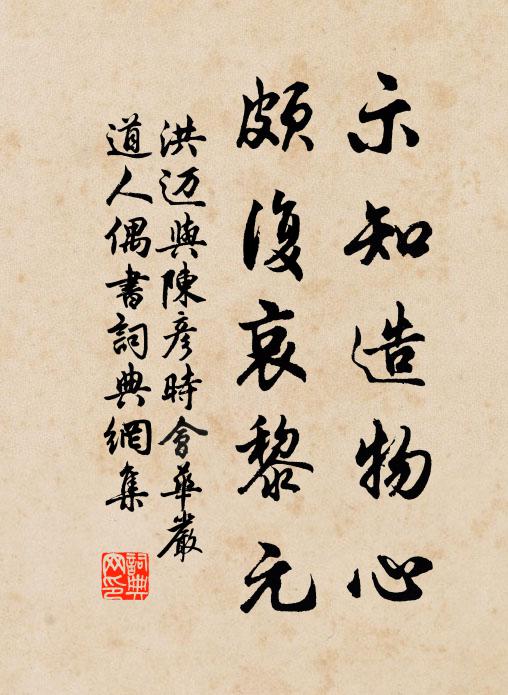 示知造物心
頗復哀黎元
洪迈與陳彦時會華嚴
道人偶書詞典網集
詞典
網印